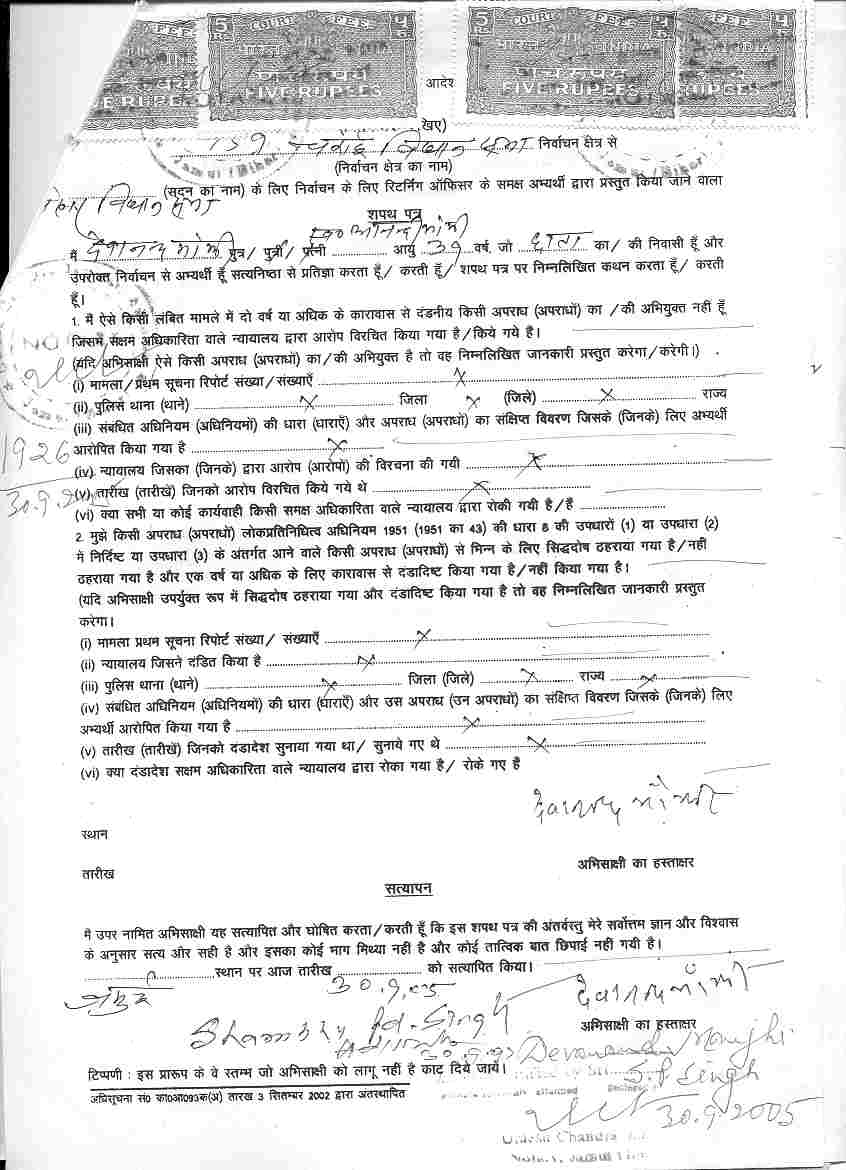 5 COURT FEE ५
Rs. भारत INDIA रु.
पाँच रुपये
FIVE RUPEES
आदेश
खिए)
विधान सभा निर्वाचन क्षेत्र से
(निर्वाचन क्षेत्र का नाम)
विधान सभा (सदन का नाम) के लिए निर्वाचन के लिए रिटर्निग ऑफिसर के समक्ष अभ्यर्थी द्वारा प्रस्तुत किया जाने वाला
शपथ पत्र
मैं पुत्र/ पुत्री/ पत्नी आयु 39 वर्ष, जो का/ की निवासी हूँ और
उपरोक्त निर्वाचन से अभ्यर्थी हूँ सत्यनिष्ठा से प्रतिज्ञा करता हूँ/ करती हूँ/ शपथ पत्र पर निम्नलिखित कथन करता हूँ/ करती
हूँ।
1. मैं ऐसे किसी लंबित मामले में दो वर्ष या अधिक के कारावास से दंडनीय किसी अपराध (अपराधों) का /की अभियुक्त नहीं हूँ
जिसमें सक्षम अधिकारिता वाले न्यायालय द्वारा आरोप विरचित किया गया है/किये गये है।
(यदि अभिसाक्षी ऐसे किसी अपराध (अपराधों) का/की अभियुक्त है तो वह निम्नलिखित जानकारी प्रस्तुत करेगा/करेगी।)
(i) मामला/प्रथम सूचना रिपोर्ट संख्या/संख्याएँ X
(ii) पुलिस थाना (थाने) X जिला X (जिले) X राज्य
(iii) संबधित अधिनियम (अधिनियमों) की धारा (धाराएँ) और अपराध (अपराधों) का संक्षिप्त विवरण जिसके (जिनके) लिए अभ्यर्थी
आरोपित किया गया है X
1926
(iv) न्यायालय जिसका (जिनके) द्वारा आरोप (आरोपों) की विरचना की गयी X
30.9.
(v) तारीख (तारीखें) जिनको आरोप विरचित किये गये थे X
(vi) क्या सभी या कोई कार्यवाही किसी समक्ष अधिकारिता वाले न्यायालय द्वारा रोकी गयी है/हैं
2. मुझे किसी अपराध (अपराधों) लोकप्रतिनिधित्व अधिनियम 1951 (1951 का 43) की धारा 8 की उपधारों (1) या उपधारा (2)
में निर्दिष्ट या उपधारा (3) के अंतर्गत आने वाले किसी अपराध (अपराधों) से भिन्न के लिए सिद्धदोष ठहराया गया है/नहीं
ठहराया गया है और एक वर्ष या अधिक के लिए कारावास से दंडादिष्ट किया गया है/नहीं किया गया है।
(यदि अभिसाक्षी उपर्युक्त रूप में सिद्धदोष ठहराया गया और दंडादिष्ट किया गया है तो वह निम्नलिखित जानकारी प्रस्तुत
करेगा।
(i) मामला प्रथम सूचना रिपोर्ट संख्या/ संख्याएँ X
(ii) न्यायालय जिसने दंडित किया है X
(iii) पुलिस थाना (थाने) X जिला (जिले) X राज्य X
(iv) संबंधित अधिनियम (अधिनियमों) की धारा (धाराएँ) और उस अपराध (उन अपराधों) का संक्षिप्त विवरण जिसके (जिनके) लिए
अभ्यर्थी आरोपित किया गया है X
(v) तारीख (तारीखें) जिनको दंडादेश सुनाया गया था/ सुनाये गए थे X
(vi) क्या दंडादेश सक्षम अधिकारिता वाले न्यायालय द्वारा रोका गया है/ रोके गए हैं
स्थान
तारीख
अभिसाक्षी का हस्ताक्षर
सत्यापन
मैं उपर नामित अभिसाक्षी यह सत्यापित और घोषित करता/करती हूँ कि इस शपथ पत्र की अंतर्वस्तु मेरे सर्वोत्तम ज्ञान और विश्वास
के अनुसार सत्य और सही है और इसका कोई भाग मिथ्या नहीं है और कोई तात्विक बात छिपाई नहीं गयी है।
स्थान पर आज तारीख 30.9.05 को सत्यापित किया।
अभिसाक्षी का हस्ताक्षर
Pd. Singh
टिप्पणी : इस प्रारूप के वे स्तम्भ जो अभिसाक्षी को लागू नहीं है काट दिये जायें।
S.P Singh
अधिसूचना सं0 का0आ093क(अ) तारख 3 सितम्बर 2002 द्वारा अंतरस्थापित
30.9.2005